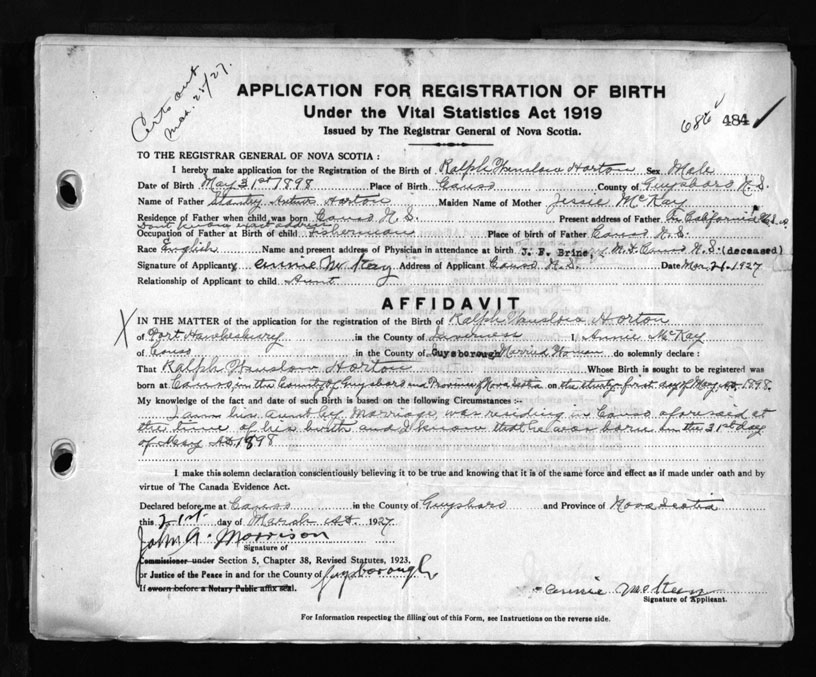 Certs out
Mar. 25/27.
APPLICATION FOR REGISTRATION OF BIRTH
Under the Vital Statistics Act 1919
Issued by The Registrar General of Nova Scotia.
686 484
TO THE REGISTRAR GENERAL OF NOVA SCOTIA :
I hereby make application for the Registration of the Birth of Ralph Wanslow Horton Sex Male
Date of Birth May 31st 1898 Place of Birth Canso County of Guysboro N.S.
Name of Father Stanley Horton Maiden Name of Mother Jessie McKay
Residence of Father when child was born Canso N.S. Present address of Father In California U.S.A.
Dont know exact address
Occupation of Father at Birth of child Fisherman Place of birth of Father Canso N.S.
Race English Name and present address of Physician in attendance at birth J. F. Brine, M.D. Canso N.S. (deceased)
Signature of Applicant Annie McKay Address of Applicant Canso N.S. Date Mar 21. 1927
Relationship of Applicant to child Aunt
AFFIDAVIT
IN THE MATTER of the application for the registration of the Birth of Ralph Wanslow Horton
of Port Hawkesbury in the County of Inverness I, Annie McKay
of Canso in the County of Guysborough Married Woman do solemnly declare :
That Ralph Wanslow Horton Whose Birth is sought to be registered was
born at Canso, in the County of Guysboro and Province of Nova Scotia on the thirty first day of May A.D. 1898.
My knowledge of the fact and date of such Birth is based on the following Circumstances :-
I am his aunt by marriage, was residing in Canso aforesaid at
the time of his birth and I know that he was born on the 31st day
of May A.D. 1898
I make this solemn declaration conscientiously believing it to be true and knowing that it is of the same force and effect as if made under oath and by
virtue of The Canada Evidence Act.
Declared before me at Canso in the County of Guysboro and Province of Nova Scotia
this 21st day of March A.D. 1927
John A. Morrison
Signature of
Commissioner under Section 5, Chapter 38, Revised Statutes, 1923,
or Justice of the Peace in and for the County of Guysborough
If sworn before a Notary Public affix seal.
Annie
Signature of Applicant.
For Information respecting the filling out of this Form, see Instructions on the reverse side.